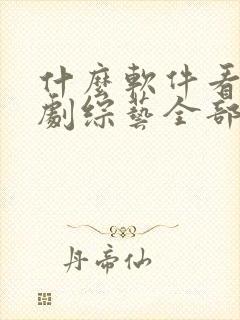 什麼軟件看
劇綜藝全部
丹帝仙